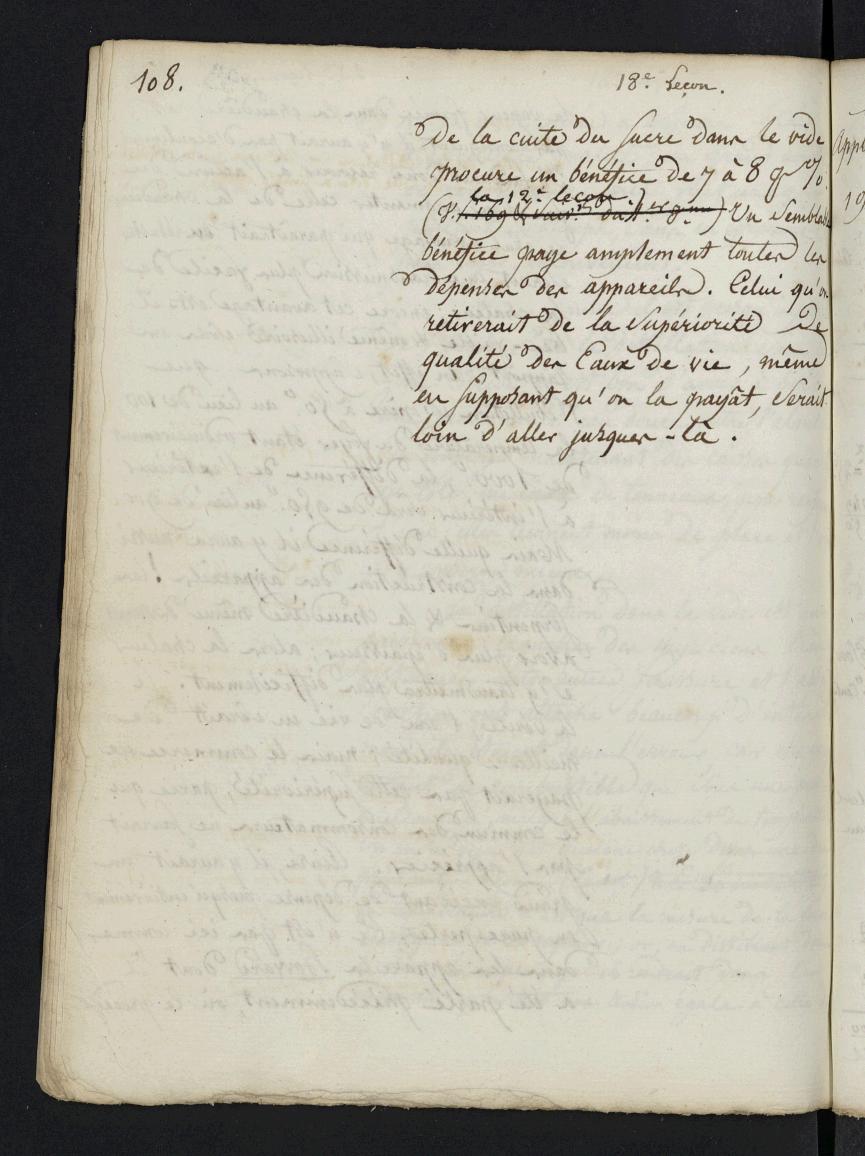 108.
18.e Leçon.
De la cuite du sucre dans le vide
procure un bénéfice de 7 à 8 p %.
la 12.e leçon.
(V. ) Un semblable
bénéfice paye amplement toutes les
dépenses des appareils. Celui qu'on
retirerait de la supériorité de
qualité des Eaux de vie, même
en supposant qu'on la payât, serait
loin d'aller jusques-là.